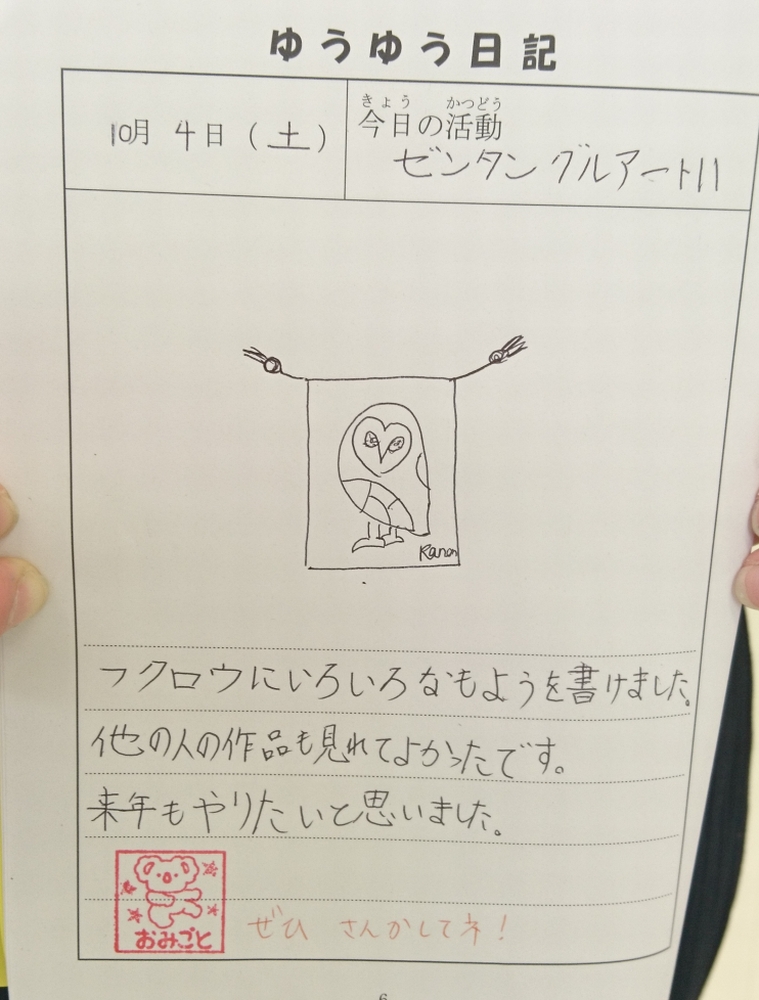 ゆうゆう日記
10月 4日（土）
きょう かつどう
今日の活動
ゼンタングルアート!!
Kanon
フクロウにいろいろなもようを書けました。
他の人の作品も見れてよかったです。
来年もやりたいと思いました。
おみごと
ぜひ さんかしてネ!
6